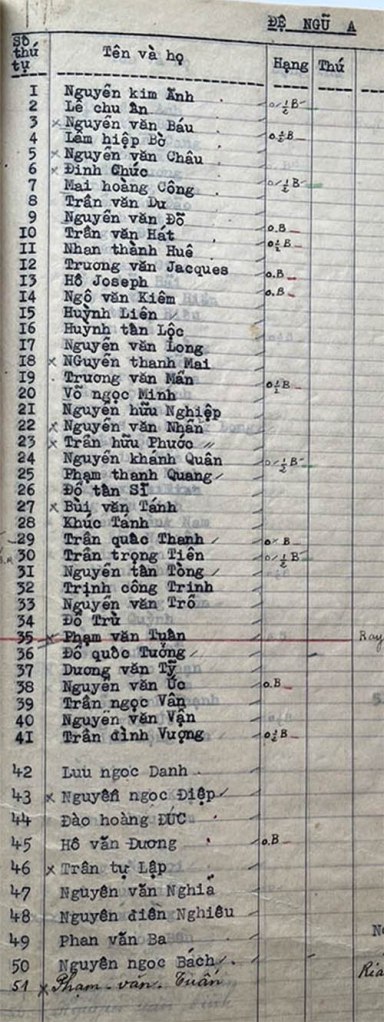 ĐỆ NGŨ A
Số thứ tự Tên và họ Hạng Thú
1 Nguyễn kim Ảnh
2 Lê chu Ân o ½ B
3 x Nguyễn văn Báu
4 Lâm hiệp Bờ o ½ B
5 x Nguyễn văn Châu
6 x Đinh Chức
7 Mai hoàng Công o ½ B
8 Trần văn Du
9 Nguyễn văn Đỗ
10 Trần văn Hát o.B
11 Nhan thành Huê o ½ B
12 Trương văn Jacques
13 Hồ Joseph o.B
14 Ngô văn Kiêm o.B
15 Huỳnh Liên
16 Huỳnh tân Lộc
17 Nguyễn văn Long
18 x NGuyễn thanh Mai
19 Trương văn Mẩn o ½ B
20 Võ ngọc Minh
21 Nguyễn hữu Nghiệp
22 x Nguyễn văn Nhẩn
23 x Trần hữu Phước
24 Nguyễn khánh Quân o ½ B
25 Phạm thanh Quang
26 Đồ tân Sĩ
27 x Bùi văn Tánh
28 Khúc Tánh
29 Trần quốc Thanh o B
30 Trần trọng Tiên o ½ B
31 Nguyễn tân Tòng
32 Trịnh công Trinh
33 Nguyễn văn Trổ
34 Đồ Trừ
35 x Phạm văn Tuân Ray
36 Đồ quốc Tưởng
37 Dương văn Tỹ
38 Nguyễn văn Úc o.B
39 Trần ngọc Vân
40 Nguyễn văn Vận
41 Trần đình Vượng o ½ B
42 Lưu ngọc Danh
43 x Nguyễn ngọc Điệp
44 Đào hoàng ĐỨC
45 Hồ văn Đương o.B
46 x Trần tự Lập
47 Nguyễn văn Nghĩa
48 Nguyễn điền Nghiêu
49 Phan văn Ba
50 Nguyễn ngọc Bách
51 x Phạm - văn - Tuấn